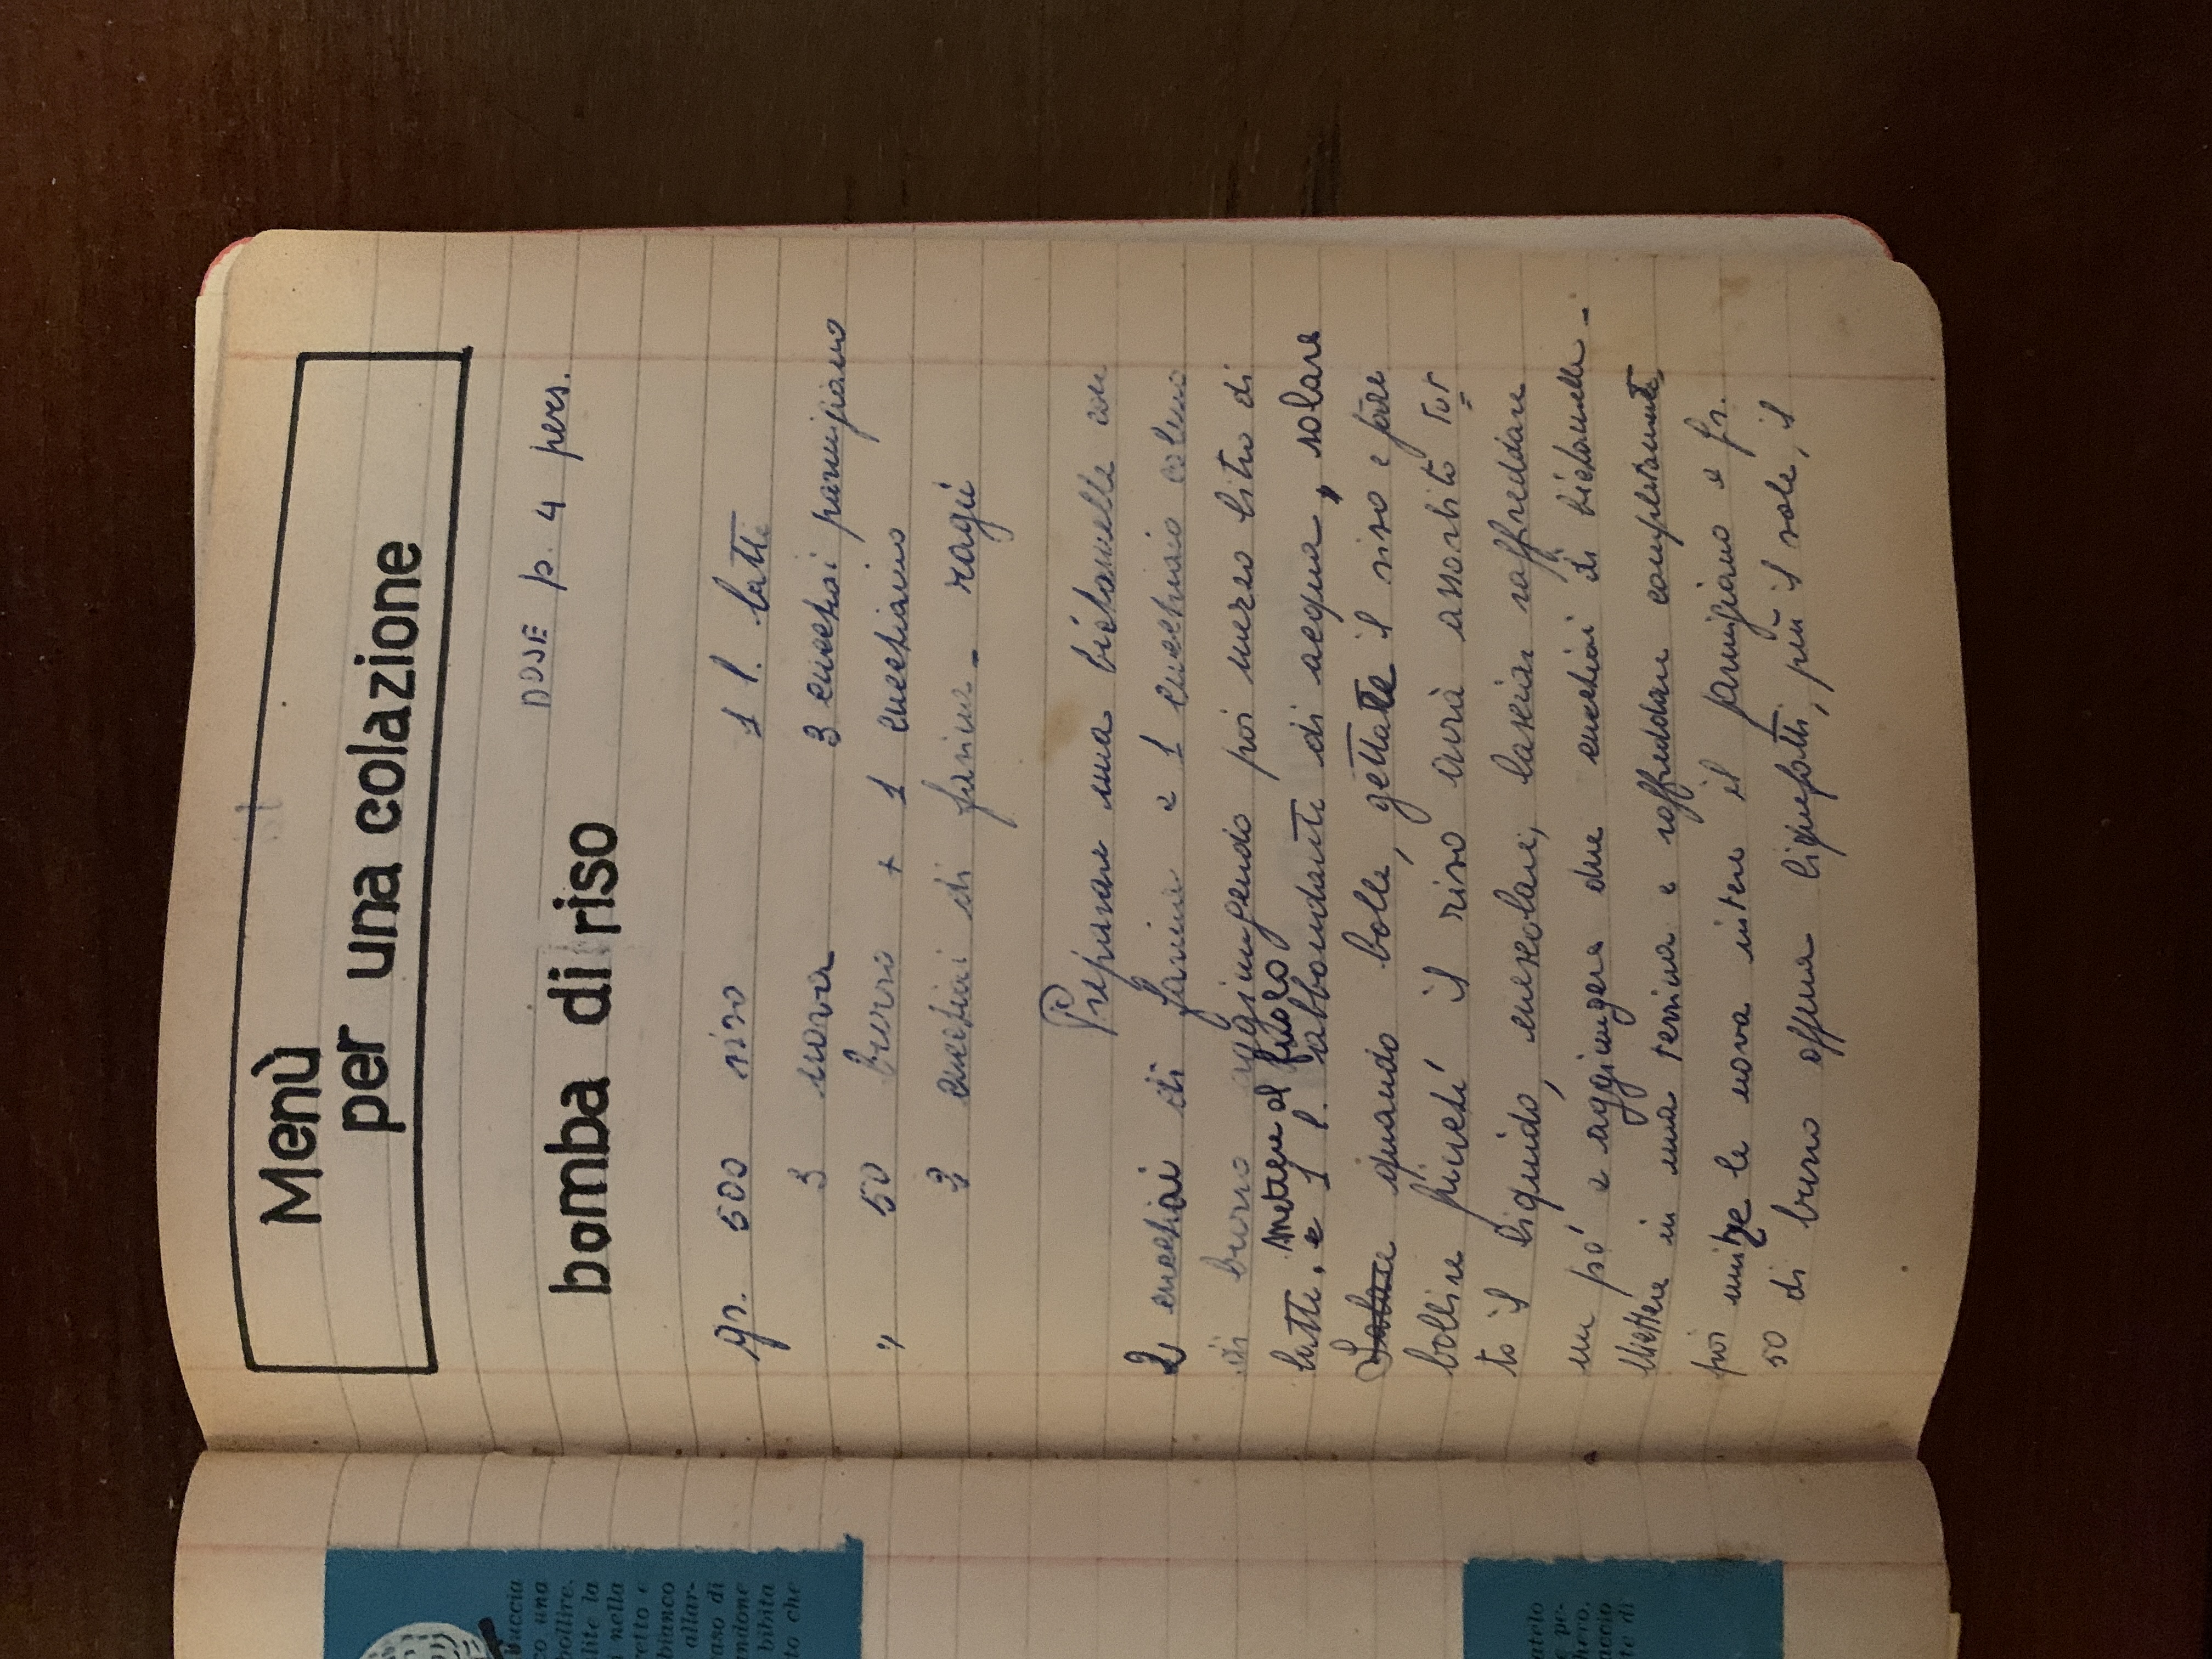 uccia
co una
bollire.
lite la
i nella
retto e
bianco
allar-
aso di
ndone
bibita
to che
atelo
e pe-
hero.
accio
te di
Menù
per una colazione
DOSE p. 4 pers.
bomba di riso
gr. 500 riso 1 l. latte
3 uova 3 cucchiai parmigiano
" 50 burro + 1 cucchiaino
cucchiai di farina - ragù
Preparare una béchamelle con
2 cucchiai di farina e 1 cucchiaio colmo
di burro aggiungendo poi mezzo litro di
mettere al fuoco
latte. e 1 l. abbondante di acqua, salare
Salare quando bolle, gettate il riso e fare
bollire finché il riso avrà assorbito tut
to il liquido, mescolare, lasciar raffreddare
un pó e aggiungere due cucchiai di béchamelle -
Mettere in una terrina e raffreddare completamente,
poi unire le uova intere il parmigiano e gr.
50 di burro appena liquefatti, più il sale, il